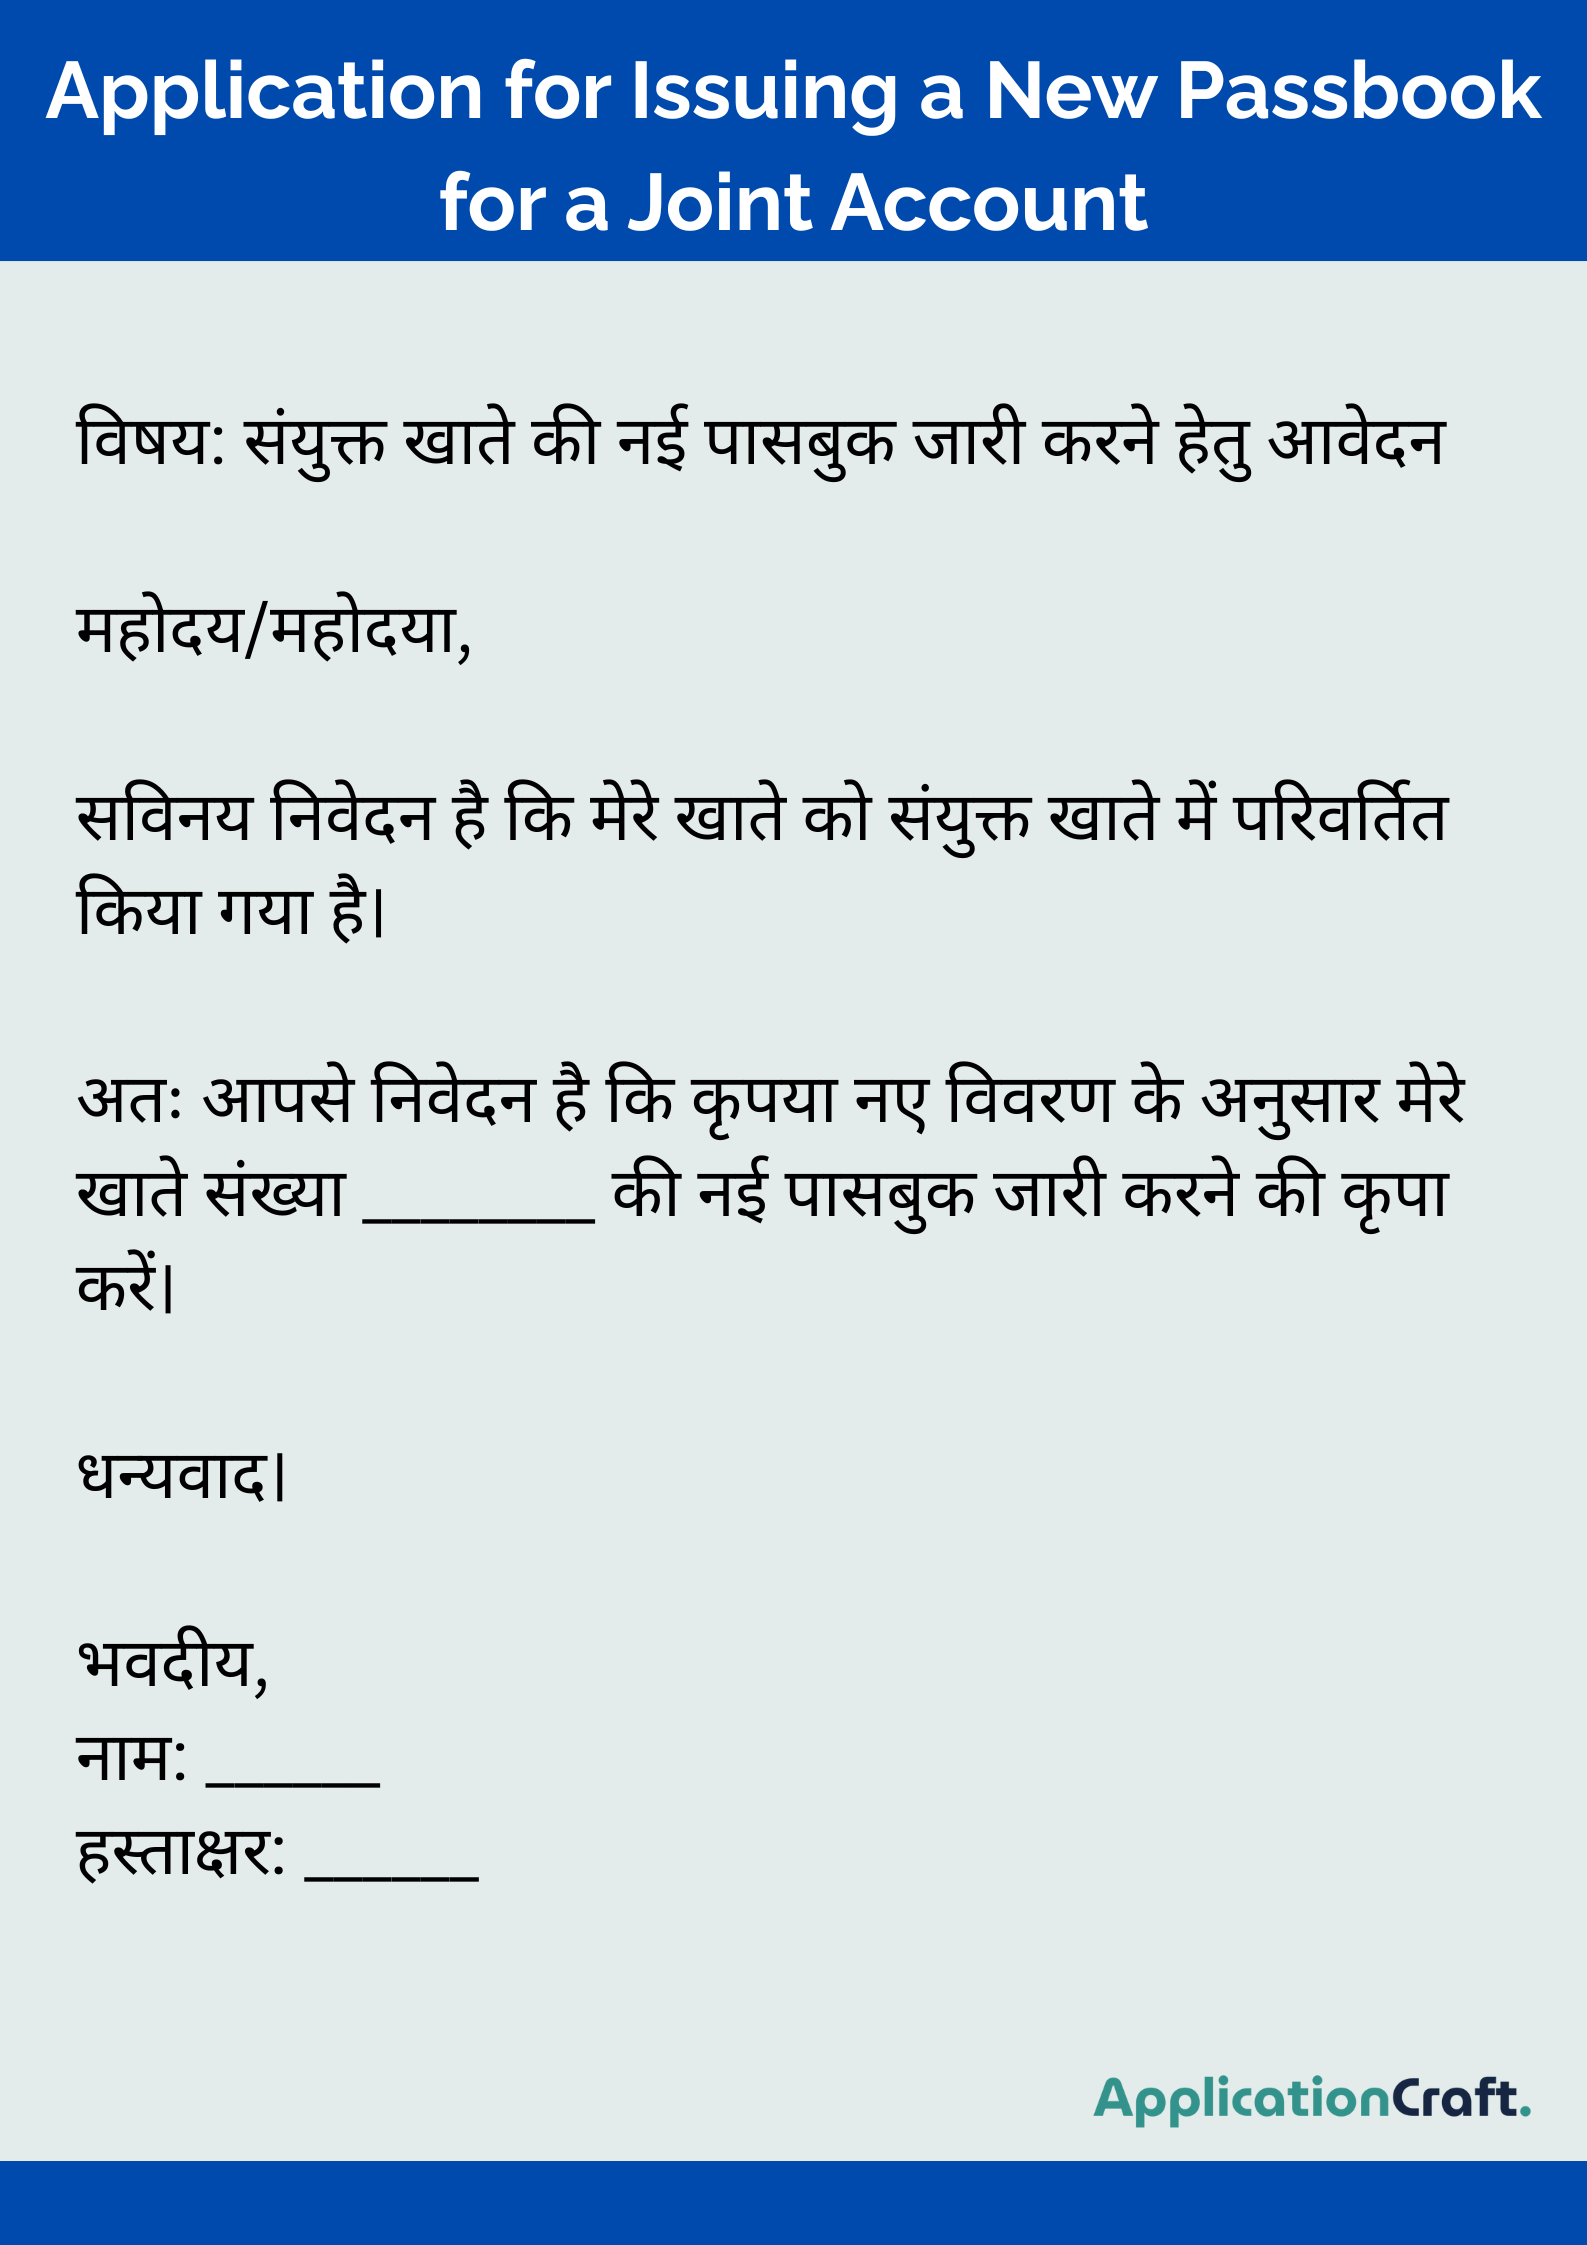 Application for Issuing a New Passbook
for a Joint Account
विषय: संयुक्त खाते की नई पासबुक जारी करने हेतु आवेदन
महोदय/महोदया,
सविनय निवेदन है कि मेरे खाते को संयुक्त खाते में परिवर्तित
किया गया है।
अतः आपसे निवेदन है कि कृपया नए विवरण के अनुसार मेरे
खाते संख्या ________ की नई पासबुक जारी करने की कृपा
करें।
धन्यवाद।
भवदीय,
नाम: ______
हस्ताक्षर: ______
ApplicationCraft.